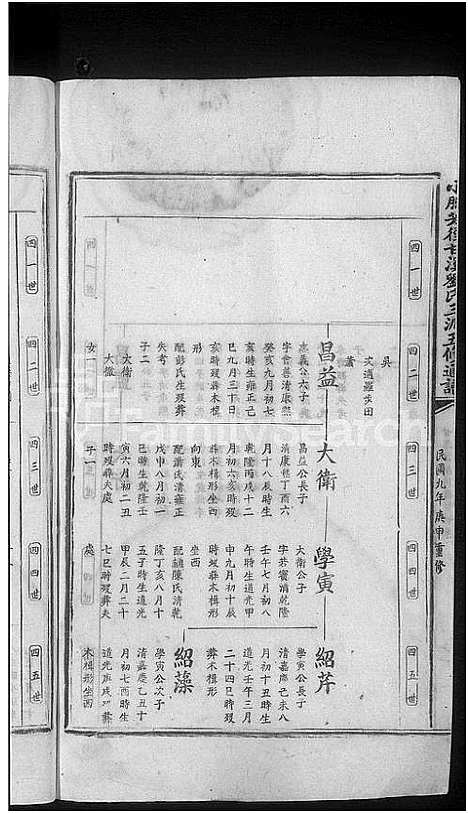 民國九年庚申重修
四一世
四二世
四三世
四四世
四五世
吳
文適羅步田
蕭
昌益
志義公六子
字會善清康熙
癸亥九月初七
亥時生雍正己
巳九月三十日
亥時歿葬木楫
形
配彭氏生歿葬
失考
子二
大衛
大徽
女一
大衛
昌益公長子
清康熙丁酉六
月十八辰時生
乾隆丙戌十二
月初六亥時歿
葬木楫形坐西
向東
配蕭氏清雍正
戊申八月初一
巳時生乾隆壬
寅六月初二丑
時歿葬夫處
子一
學寅
大衛公子
字若賓清乾隆
壬午七月初八
午時生道光甲
申九月初十辰
時歿葬木楫形
坐西
配鍾陳氏清乾
隆丁亥八月十
五子時生道光
甲辰二月二十
七巳時歿葬夫
處
紹芹
學寅公長子
清嘉慶己未八
月初十五時生
道光壬午三月
二十四巳時歿
葬木楫形
紹藻
學寅公次子
清嘉慶乙丑十
月初七酉時生
道光庚戌歿葬
木楫形坐西
四一世
四二世
四三世
四四世
四五世